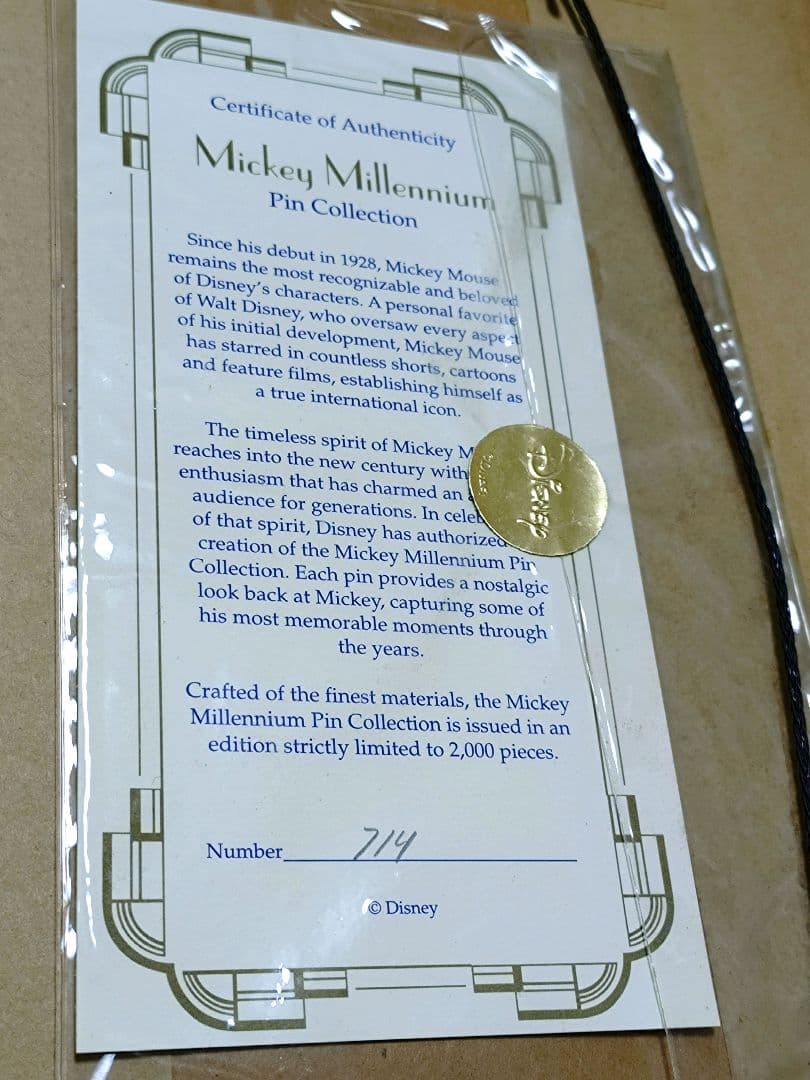 Certificate of Authenticity
Mickey Millennium
Pin Collection
Since his debut in 1928, Mickey Mouse
remains the most recognizable and beloved
of Disney's characters. A personal favorite
of Walt Disney, who oversaw every aspect
of his initial development, Mickey Mouse
has starred in countless shorts, cartoons
and feature films, establishing himself as
a true international icon.
The timeless spirit of Mickey M
reaches into the new century with
enthusiasm that has charmed an
audience for generations. In celeb
of that spirit, Disney has authorized
creation of the Mickey Millennium Pin
Collection. Each pin provides a nostalgic
look back at Mickey, capturing some of
his most memorable moments through
the years.
Disney
Crafted of the finest materials, the Mickey
Millennium Pin Collection is issued in an
edition strictly limited to 2,000 pieces.
Number 714
© Disney